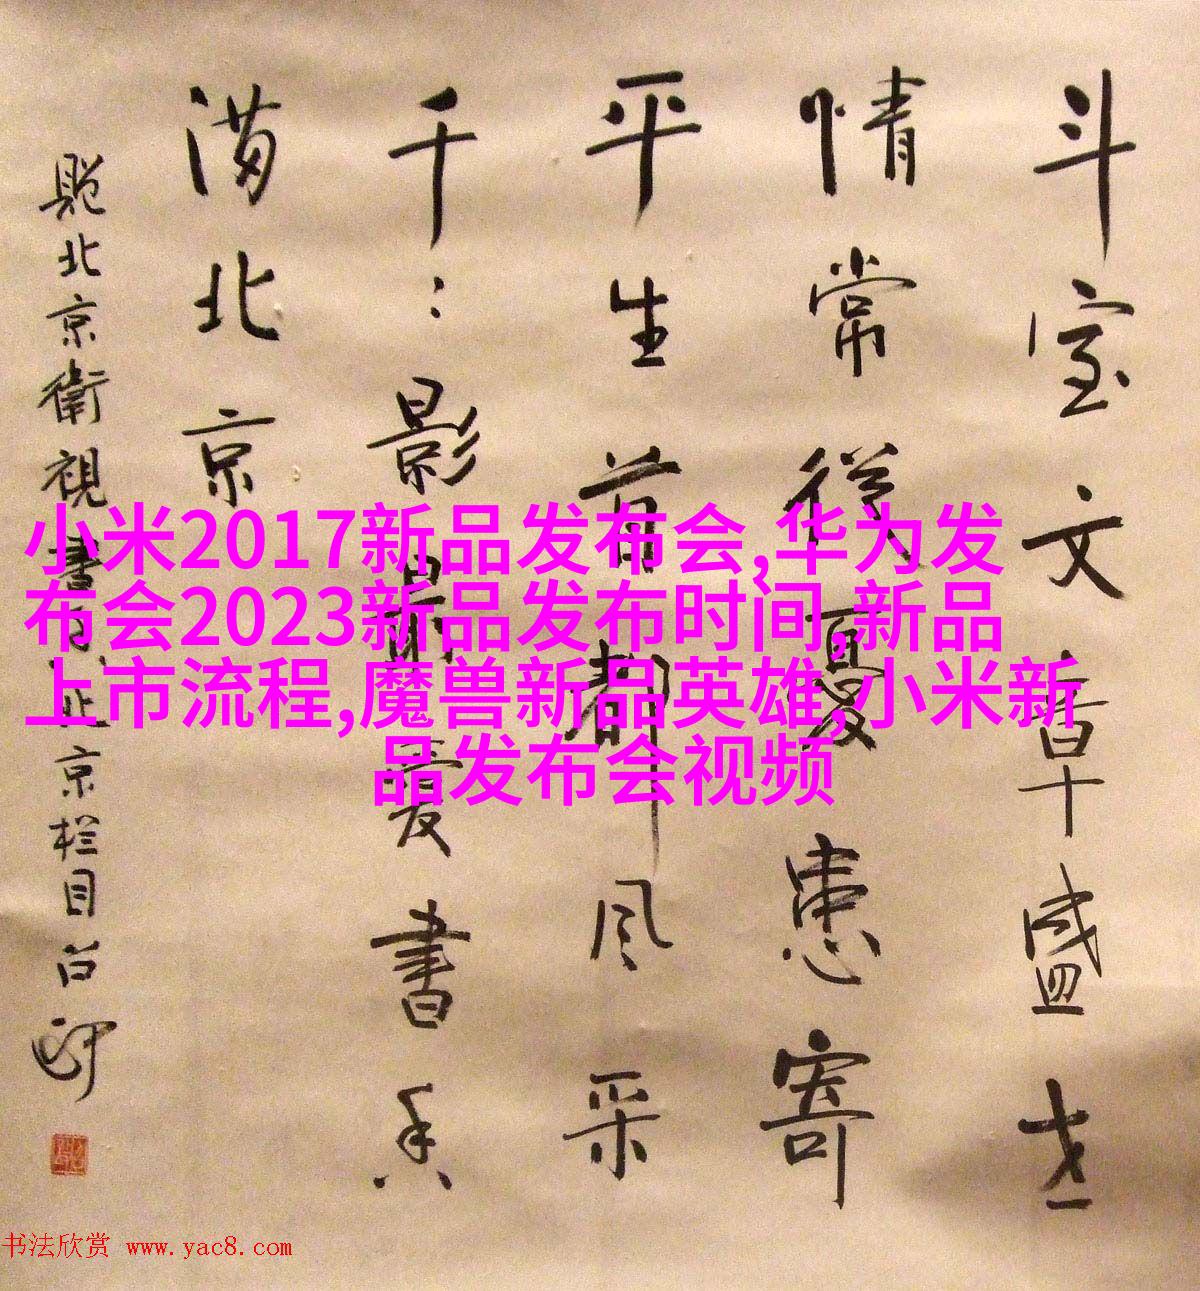 斗室文章盛世
情常從憂患寄
平生首都風采
千：影最愛書香
满北京
题北京衛視書香北京栏目
小米2017新品发布会,华为发
布会2023新品发布时间,新品
上市流程,魔兽新品英雄,小米新
品发布会视频
书法欣赏 www.yac8.com